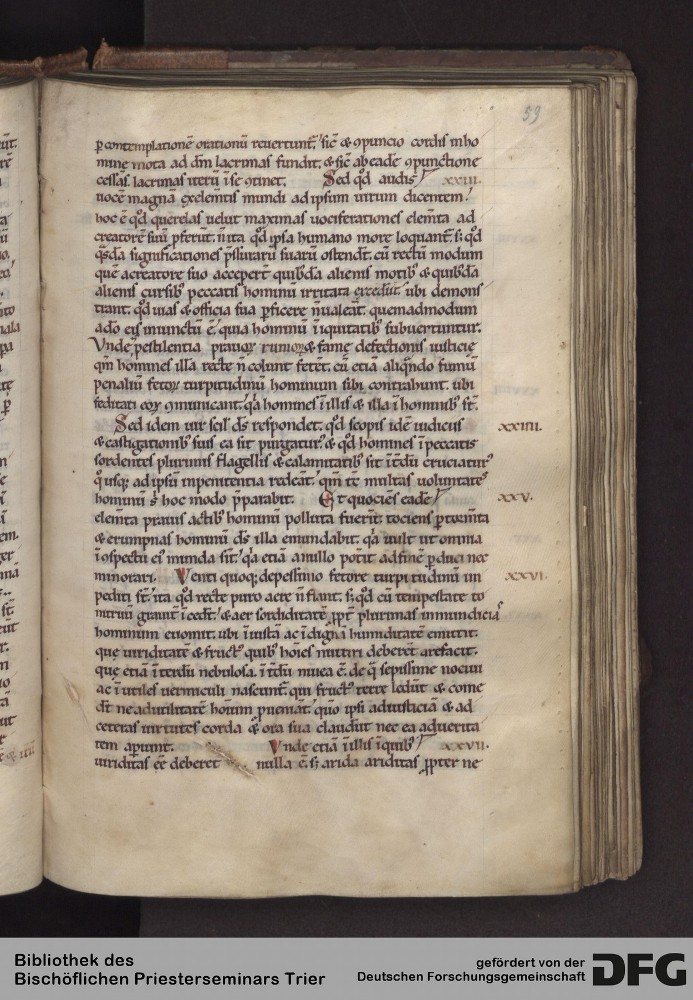 59
ꝑ contemplationē orationū reuertunt᷑. sic̄ & ꝯpuncio cordis in ho
mine mota ad dm̄ lacrimas fundit. & sic̄ ab eadē ꝯpunctione
cessās. lacrimas iterū in se ꝯtinet. Sed qđ audis xxiii.
uocē magnā ex elemtis mundi ad ipsum uirum dicentem.
hoc ē qđ querelas uelut maximas uociferationes elem̄ta ad
creatorē suū ꝓferūt. n̄ ita qđ ipsa humano more loquant᷑. sꝫ qđ
q̄sda significationes p̄ssurarū suarū ostendt᷑. cū rectū modum
quē a creatore suo accepert̄ quibꝰda alienis motibꝰ & quibꝰda
alienis cursibꝰ peccatis hominū irritata excedūt. ubi demons
trant. qđ uias & officia sua ꝑficere n̄ ualeāt. quemadmodum
a do eis iniunctū ē. quia hominū iniquitatibꝰ subuertuntur.
Vnde pestilentia prauoꝝ rumoꝝ & fame defectionis iusticie
qm̄ homines illa recte n̄ colunt fetēt. cū etiā aliqn̄do fumū
penaliū fetoꝝ turpitudinū hominum sibi contrahunt. ubi
feditati eoꝝ ꝯmunicant. qa homines in illis & illa in hominibꝰ st̄.
Sed idem uir scil᷑ ds̄ respondet. qđ scopis idē iudiciis xxiiii.
& castigationibꝰ suis ea sit purgaturꝰ. & qđ homines in peccatis
sordentes plurimis flagellis & calamitatibꝰ sit int̄dū cruciaturꝰ
qꝰusqꝫ ad ipsū in penitentia redeāt. qm̄ tc̄ multas uoluntates
hominū s̄ hoc modo p̄parabit. Et quociēs eadē xxv.
elem̄ta prauis actibꝰ hominū polluta fuerīt. tociens ꝑ tormta
& erumpnas hominū ds̄ illa emundabit. qa uult ut omnia
in ꝯspectu eiꝰ munda sīt. qa etiā a nullo pot̄it ad finē ꝑduci nec
minorari. Venti quoqꝫ de pessimo fetore turpitudinū im xxvi.
pediti st̄. ita qđ recte puro aere n̄ fiant. sꝫ qđ cū tempestate to
nitruū grauit̄ incedt̄. & aer sordiditatē ꝓpt̄ plurimas inmundicias
hominum euomit. ubi iniustā ac indignā humiditatē emittit.
que uiriditatē & fructꝰ quibꝰ hoīes nutriri deberēt arefacit.
que etiā int̄dū nebulosa. int̄dū niuea ē. de q̄ sepissime nociui
ac inutiles uermiculi nascunt᷑. qui fructꝰ terre ledūt & come
dt̄ ne ad utilitatē hoīum ꝓueniāt. quō ipsi ad iusticiā & ad
ceteras uirtutes corda & ora sua claudūt nec ea ad uerita
tem aꝑiunt. Vnde etiā in illis in quibꝰ xxvii.
uiriditas eē deberet nulla ē. sꝫ arida ariditas ꝓpter ne
Bibliothek des
Bischöflichen Priesterseminars Trier
gefördert von der
Deutschen Forschungsgemeinschaft
DFG